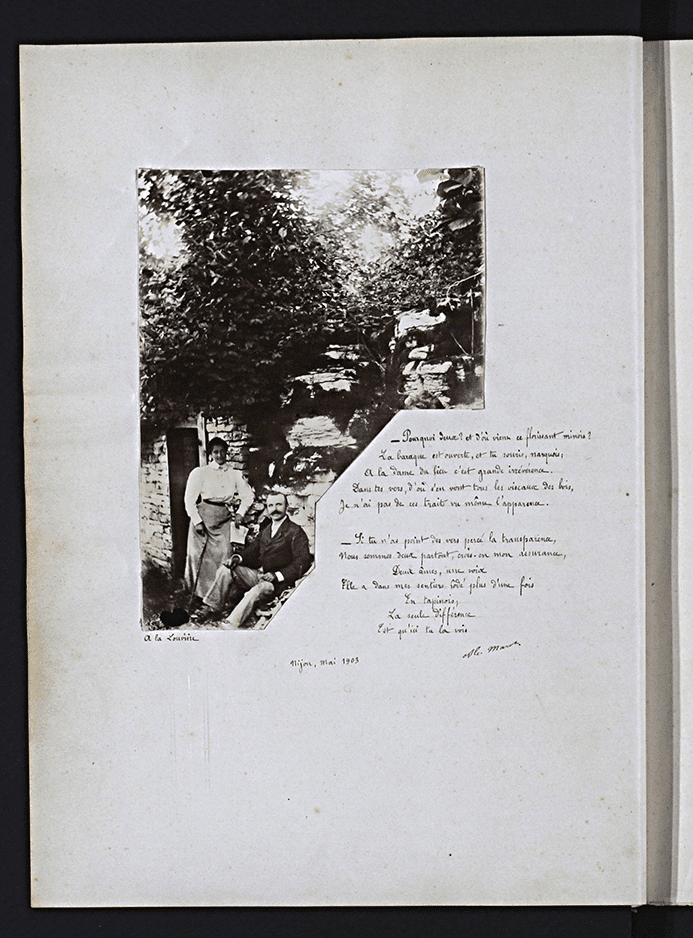 — Pourquoi deux? et d'où vient ce florissant minois?
La baraque est ouverte, et tu souris, narquois;
A la dame du lieu c'est grande irrévérence.
Dans tes vers, d'où s'en vont tous les oiseaux des bois,
Je n'ai pas de ces traits vu même l'apparence.
— Si tu n'as point des vers percé la transparence,
Nous sommes deux partout, crois-en mon assurance,
Deux âmes, une voix
Elle a dans mes sentiers rôdé plus d'une fois
En tapinois;
La seule différence
Est qu'ici tu la vois
A la Louvière
Nijon, mai 1903